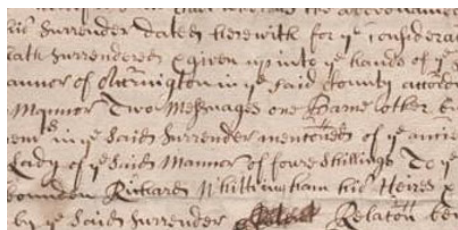 his Surrender dated herewith for ye considerac
hath Surrendered & given up into ye hands of ye
annor of in ye said County accord
Mannor Two Messuages one Barne other
in ye said Surrender menconed of ye ancie
Lady of ye said Mannor of foure shillings To ye
bounden Richard Whittingham his Heires &
by ye said Surrender Relacon